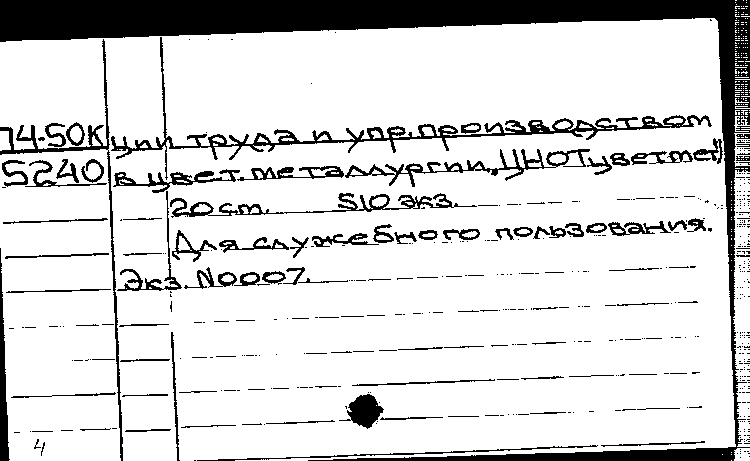 74-50К ции труда и упр. производством
5240 в цвет. металлургии „ЦНОТцветмет")
20 cm. 510 экз.
Для служебного пользования.
Экз. N0007.
4